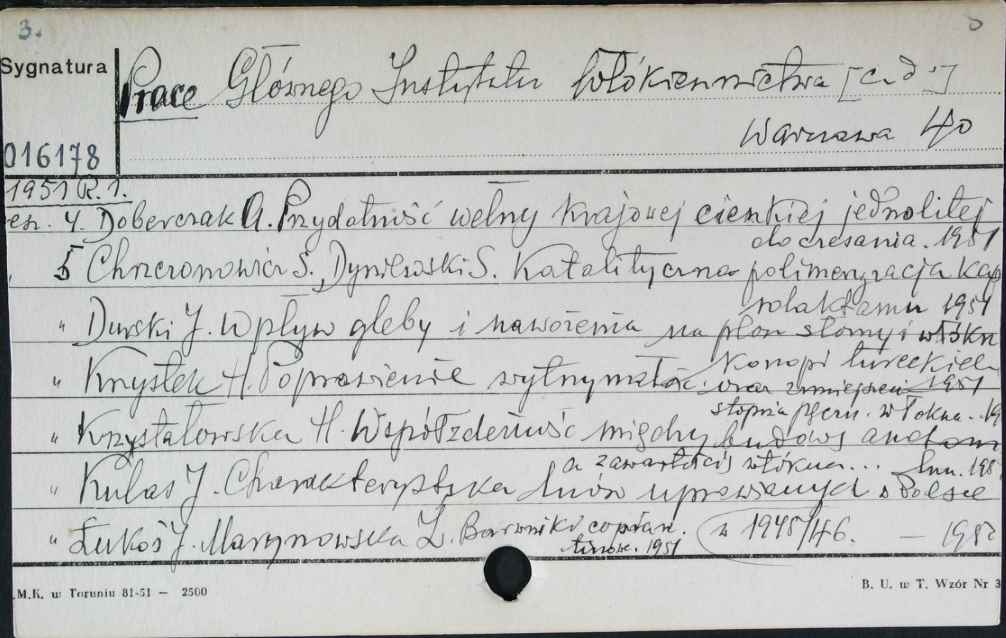 3.
Sygnatura
Prace Głównego Instytutu Włókiennictwa [c. d.]
Warszawa 40
016178
1951 R. 1.
4. Doberczak A. Przydatność wełny krajowej cienkiej jednolitej
do czesania. 1951
5 Chrzczonowicz S. Dymilwoski S. Katalityczna polimeryzacja kap
rolaktamu 1951
" Durski J. Wpływ gleby i nawożenia na plon słomy i włókn
konopi tureckich 1951
" Knysłek H. Poprawienie wytrzymałoś. oraz zmniejszeni
stopnia pęczn. włókna.
" Krzysztalowska H. Współzdeność między budową anatom
a zawartością włókna... lnu. 195
" Kulas J. Charakterystyka lnów uprawianych w Polsce
w 1945/46. — 1952
" Łukoś J. Marynowska Z. Barwniki
1951
M.K. w Toruniu 81-51 — 2500
B. U. w T. Wzór Nr 3